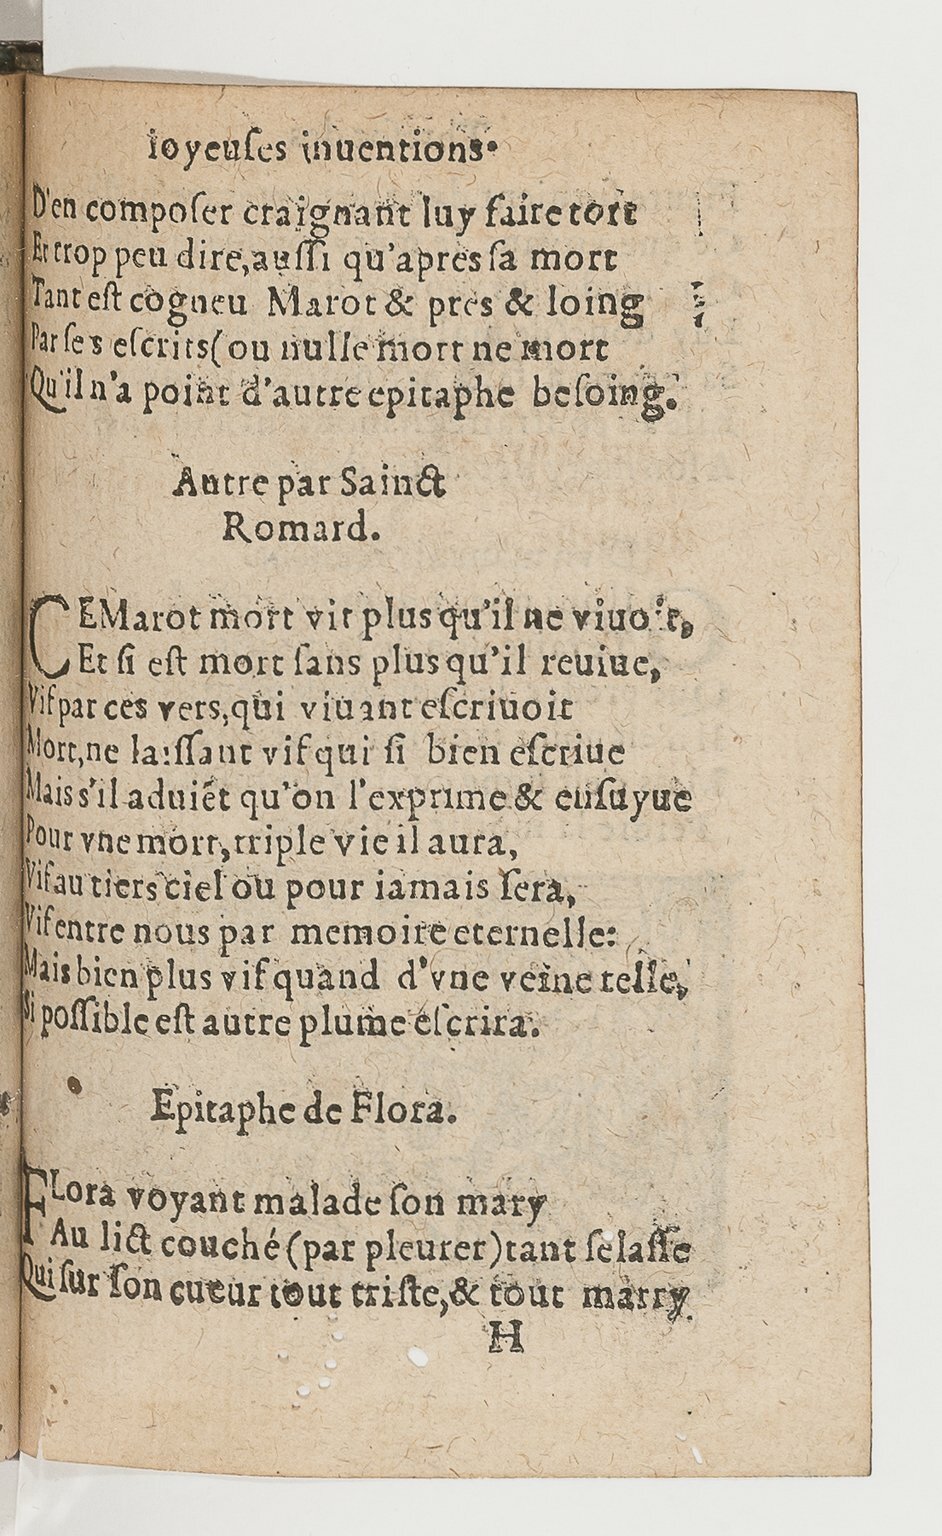 ioyeuſes inuentions.
D'en compoſer craignant luy faire tort
Et trop peu dire, auſſi qu'apres ſa mort
Tant eſt cogneu Marot & pres & loing
Par ſes eſcrits (ou nulle mort ne mort
Qu'il n'a point d'autre epitaphe beſoing.
Autre par Sainct
Romard.
CE Marot mort vit plus qu'il ne viuoit,
Et ſi eſt mort ſans plus qu'il reuiue,
Vif par ces vers, qui viuant eſcriuoit
Mort, ne laiſſant vif qui ſi bien eſcriue
Mais s'il aduiẽt qu'on l'exprime & enſuyue
Pour vne mort, triple vie il aura,
Vif au tiers ciel ou pour iamais ſera,
Vif entre nous par memoire eternelle:
Mais bien plus vif quand d'vne veine telle,
Si poſſible eſt autre plume eſcrira.
Epitaphe de Flora.
FLora voyant malade ſon mary
Au lict couché (par pleurer) tant ſe laſſe
Qui ſur ſon cueur tout triſte, & tout marry
H